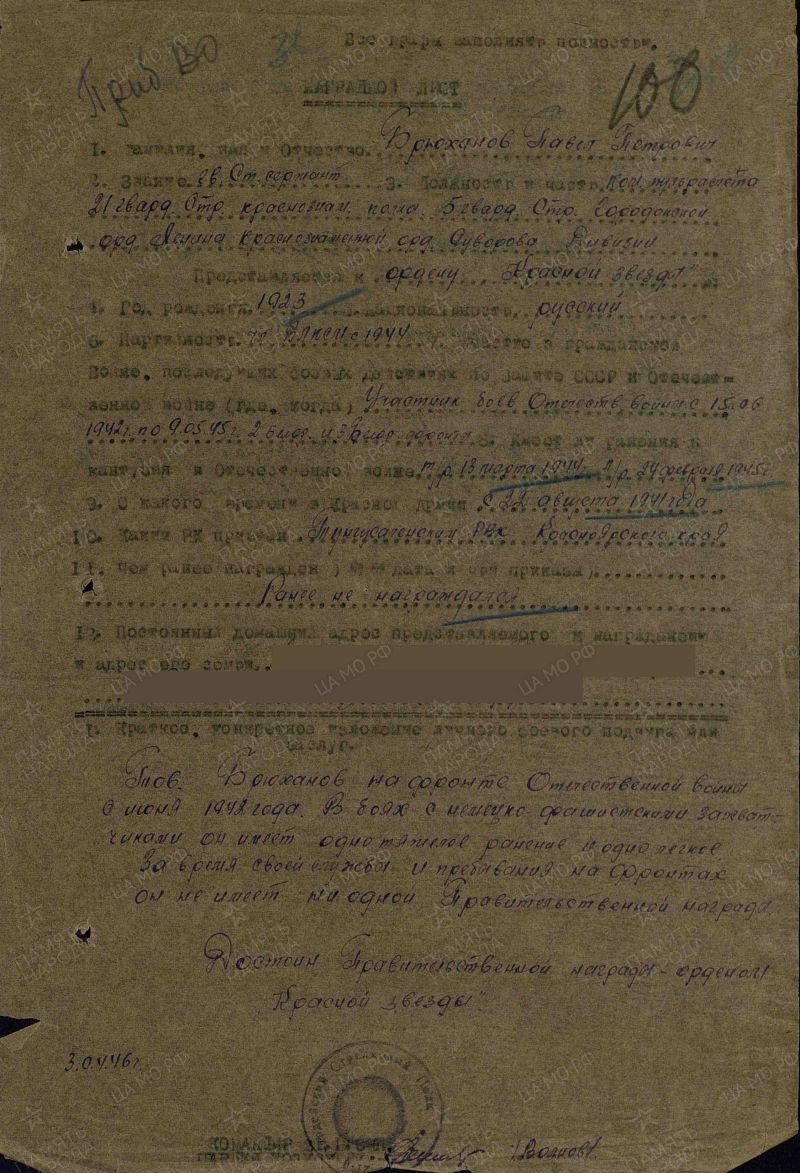 Все графы заполнять полностью.
Приб ВО
100
НАГРАДНОЙ ЛИСТ
1. Фамилия, имя и Отчество. Брюханов Павел Петрович
2. Звание гв. Ст. сержант 3. Должность и часть Ком. пульрасчета
21 гвард. Стр. краснознам. полка 5 гвард. Стр. Городокской
орд. Ленина Краснознаменной орд. Суворова Дивизии
Представляется к ордену "Красной звезды"
4. Год рождения 1923 5. национальность русский
6. Партийность ВЛКСМ с 1944 7. Участие в гражданской
Войне, последующих боевых действиях по Защите СССР и Отечест-
венной войне (где, когда) Участник боёв Отечеств. войны с 15.06
1942г. по 9.05.45г. 2 Белор. и 3 Белор. фронта 8. Имеет ли ранения и
контузии в Отечественной войне. т/р. 13 марта 1944 л/р. 24 февраля 1945г
9. С какого времени в Красной Армии с 22 августа 1941 года
10. Каким РВК призван Красноярского край
11. Чем ранее награжден дата и приказа)
Ранее не награждался
12. Постоянный домашний адрес представляемого к награждению
и адрес его семьи..
1. Краткое, конкретное изложение личного боевого подвига или
заслуг.
Тов. Брюханов на фронте Отечественной войны
с июня 1942 года. В боях с немецко-фашистскими захват-
чиками он имеет одно тяжелое ранение и одно легкое
За время своей службы и пребывания на фронтах
он не имеет ни одной Правительственной награды
Достоин Правительственной награды - орденом
"Красной звезды".
3.04.46г.
КОМАНДИР
/Волков/
ПАМЯТЬ НАРОДА
ЦА МО РФ